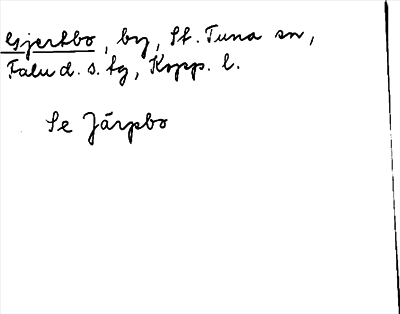 Gjertbo, by, St. Tuna sn,
Falu d. s. tg, Kopp. l.
Se Järpbo